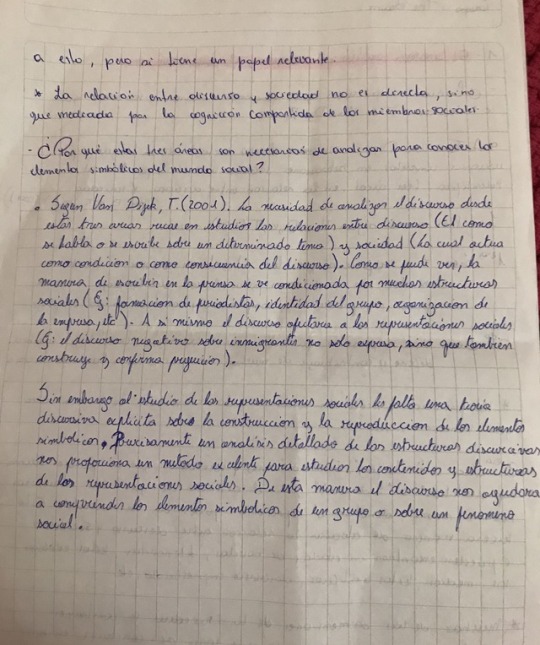 a esto, pero si tiene un papel relevante.
* La relación entre discurso y sociedad no es directa, sino
que mediada por la cognición compartida de los miembros sociales.
- ¿Por qué estas tres áreas son necesarias de analizar para conocer los
elementos simbólicos del mundo social?
• Segun Van Dijk, T. (2001). La necesidad de analizar el discurso desde
estas tres areas en estudiar las relaciones entre discurso (El como
se habla o se escribe sobre un determinado tema) y sociedad (La cual actua
como condición o como consecuencia del discurso). Como se puede ver, la
manera de escribir en la prensa se ve condicionada por muchas estructuras
sociales (Ej: formacion de periodistas, identidad del grupo, organizacion de
la empresa, etc). A si mismo el discurso afectara a las representaciones sociales
(Ej: el discurso negativo sobre inmigrantes no solo expresa, sino que tambien
construye y confirma prejuicios).
Sin embargo al estudio de las representaciones sociales les falta una teoria
discursiva explicita sobre la construccion y la reproduccion de los elementos
simbolicos. Precisamente un analisis detallado de las estructuras discursivas
nos proporciona un metodo exelente para estudiar los contenidos y estructuras
de las representaciones sociales. De esta manera el discurso nos ayudara
a comprender los elementos simbolicos de un grupo o sobre un fenomeno
social.